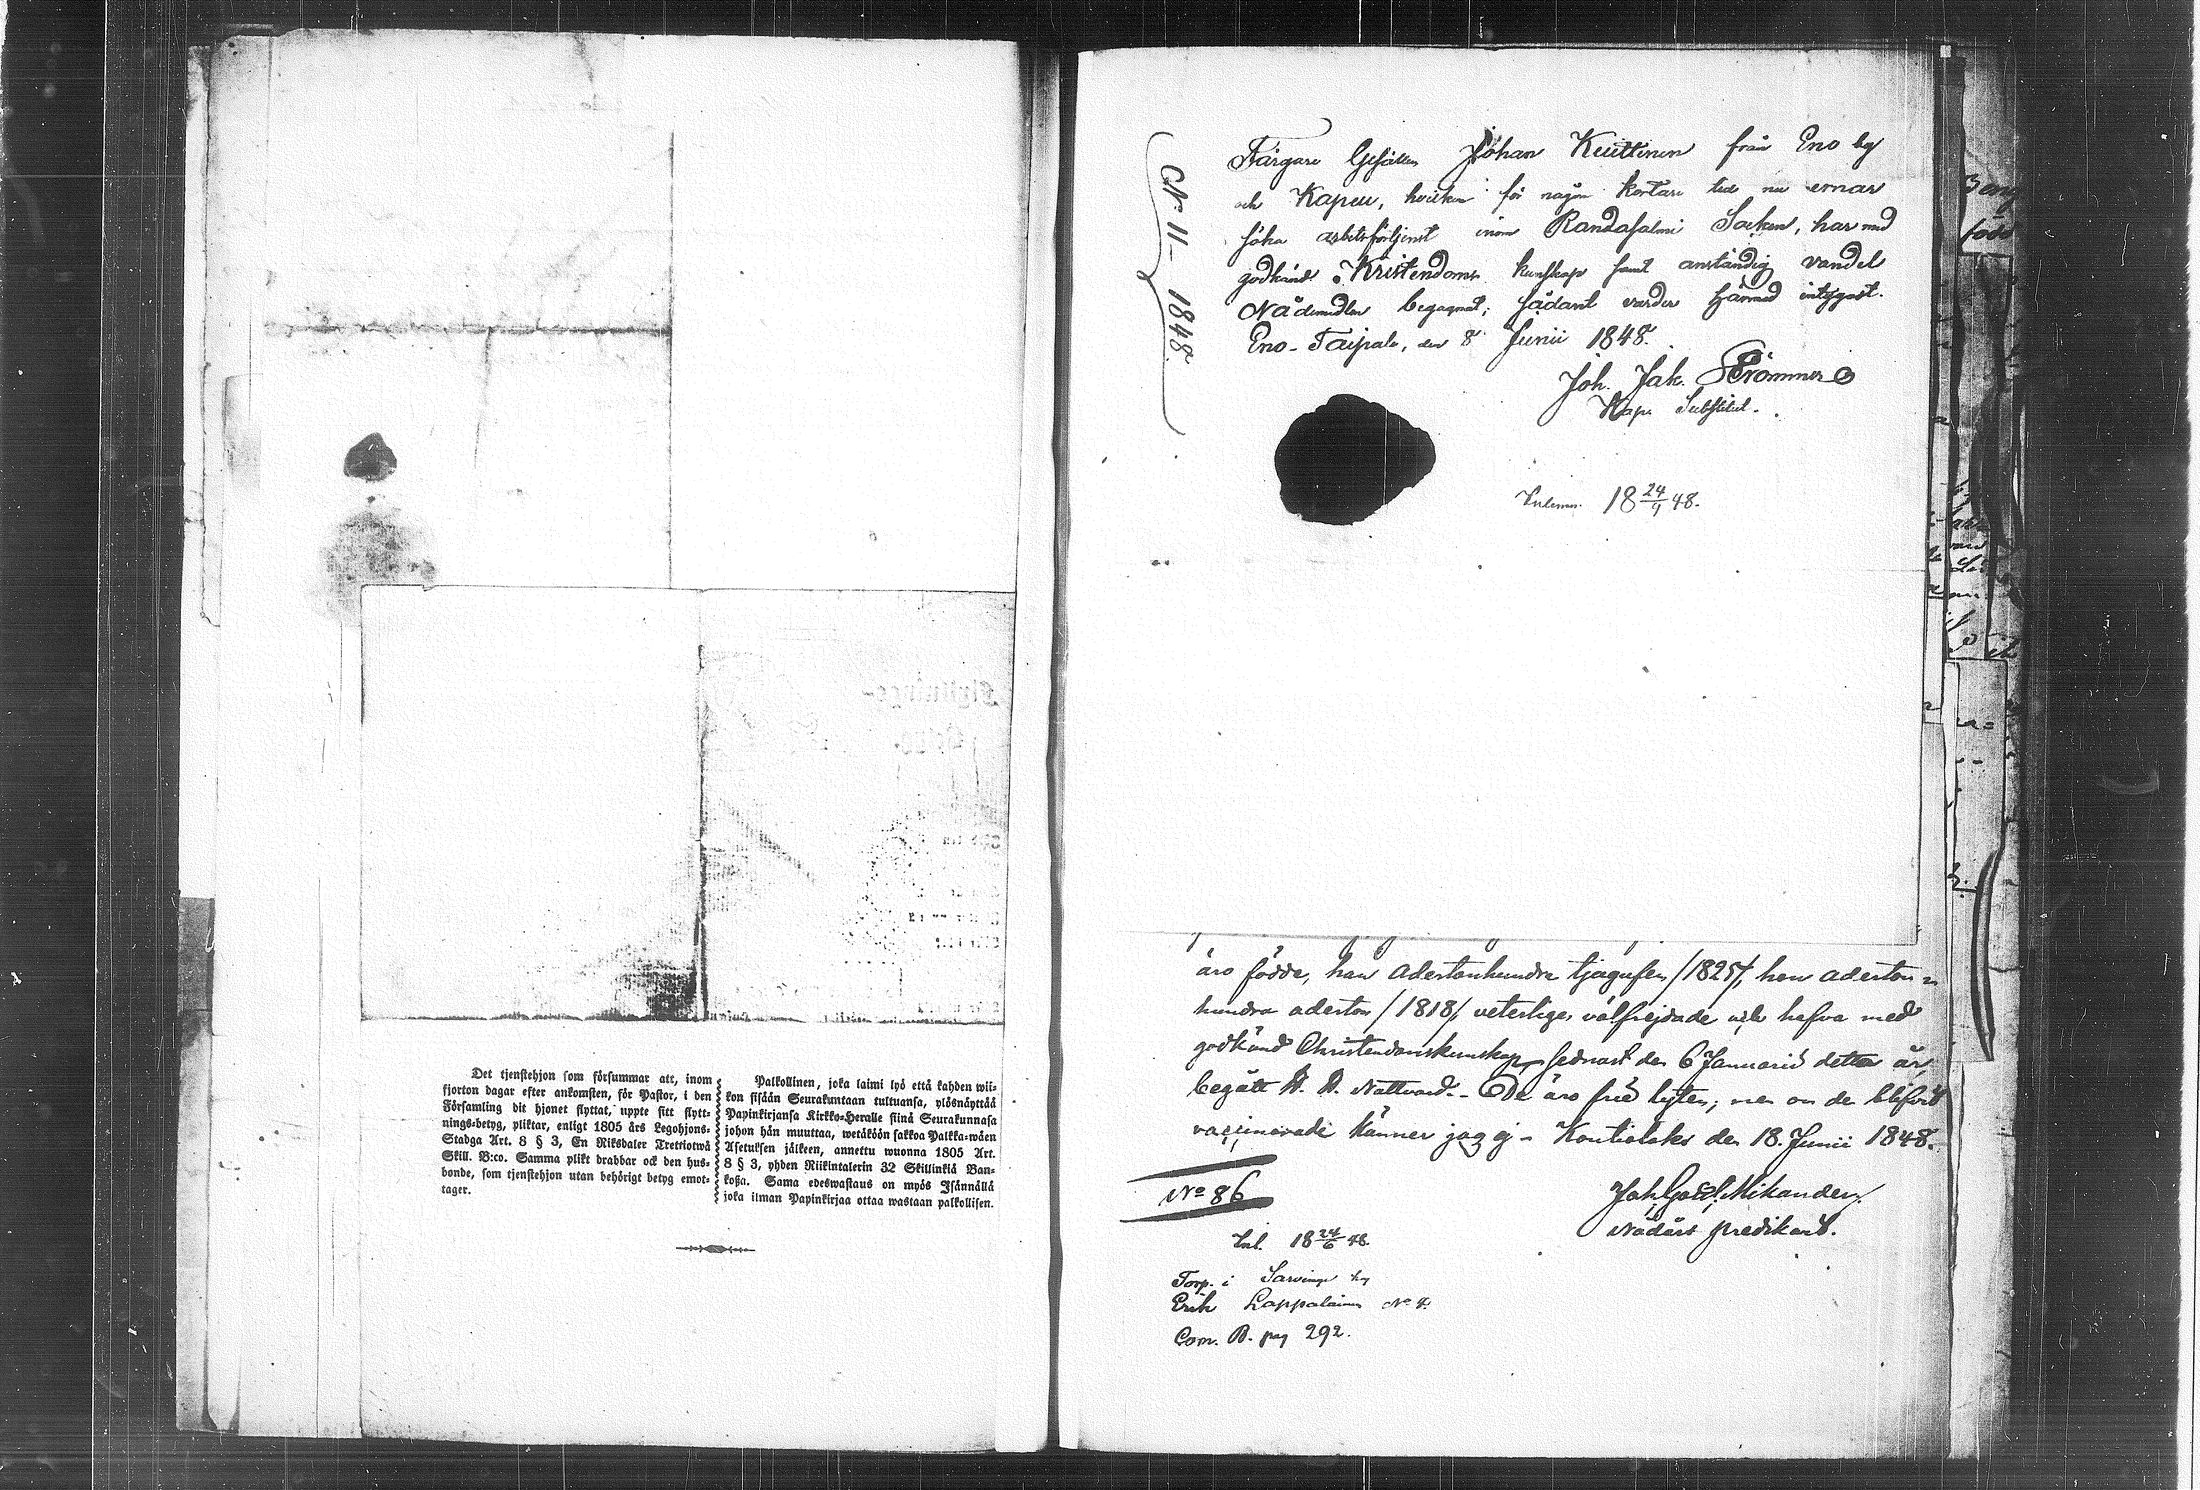 Det tjenstehjon som försummar att, inom
fjorton dagar efter ankomsten, för Pastor, i den
Församling dit hjonet flyttat, uppte sitt flytt-
nings-betyg, pliktar, enligt 1805 års Legohjons-
Stadga Art. 8 § 3, En Riksdaler Tretriotwå
Skill. B:co. Samma plikt drabbar ock den hus-
bonde, som tjenstehjon utan behörigt betyg emot-
tager.
Palkollinen, joka laimi lyö että kahden wii-
kon sisään Seurakuntaan tultuansa, ylösnäyttää
Papinkirjansa Kirkko-Heralle siinä Seurakunnasa
johon hän muuttaa, wetäköön sakkoa Palkka-wäen
Asetuksen jälkeen, annettu wuonna 1805 Art.
8 § 3, yhden Riikintalerin 32 Skillinkiä Ban-
koßa. Sama edeswastaus on myös Isännällä
joka ilman Papinkirjaa ottaa wastaan palkollisen.
N. 11 - 1848.
Färgare Gesällen Johan Keuttinen från Eno by
och Kapell, hvilken för någon kortare tid nu ernar
söka arbetsförtjenst inom Randasalmi Socken, har med
godkänd Kristendoms kunskap samt anständig vandel
Nådemedlen begagnat; sådant varder härmed intygadt.
Eno-Taipale, den 8 Junii 1848.
Joh. Jak. Strömmer
Kapl. Substitut.
Inlemn. 18 24/4 48.
äro födde, han adertonhundra tjugufem /1825/, hon aderton-
hundra aderton /1818/ veterligen välfrejdade och hafva med
godkänd Christendomskunskap sednast den 6 Januarii detta år
begått H. H. Nattvard. - De äro fria lyten; men om de blifvit
vaccinerade känner jag ej - Kontiolaks den 18. Junii 1848.
Joh. Gust. Mikander.
Nådårs predikant.
No 86
Inl. 18 24/6 48.
Torp. i Sarvinge by
Erik Lappalainen No 4.
Com. B. pag 292.